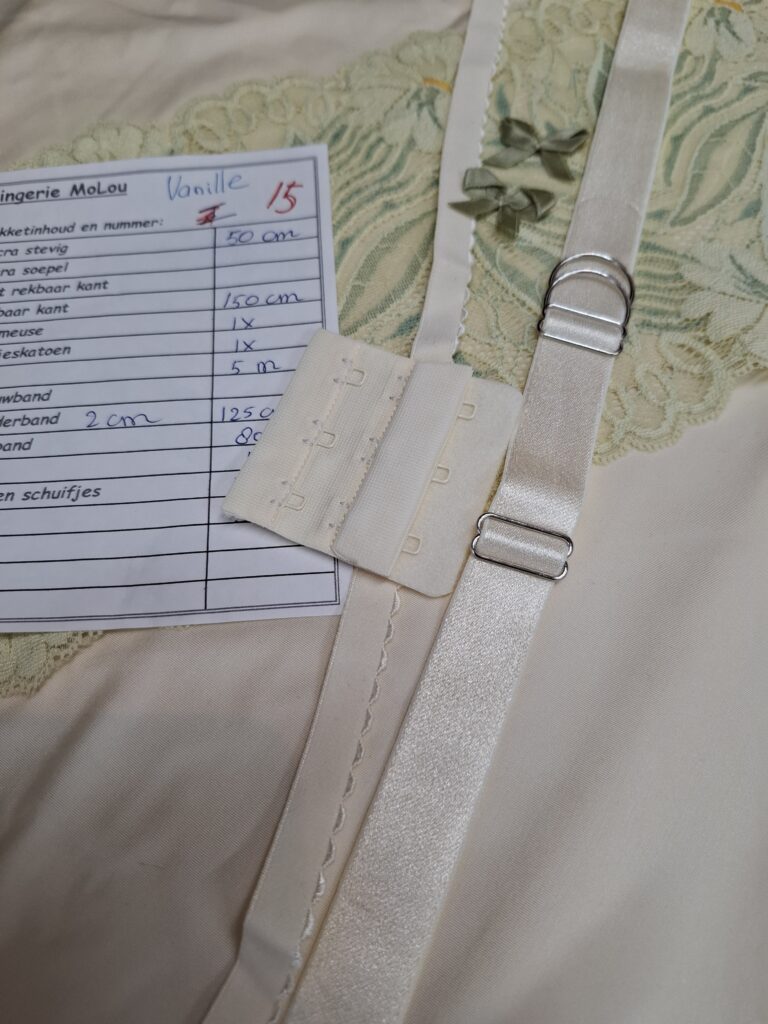 ingerie MoLou Vanille 15
kketinhoud en nummer:
cra stevig 50 cm
ra soepel
t rekbaar kant
baar kant 150 cm
meuse 1x
ieskatoen 1x
5 m
uwband
derband 2 cm 125
band 80
en schuifjes